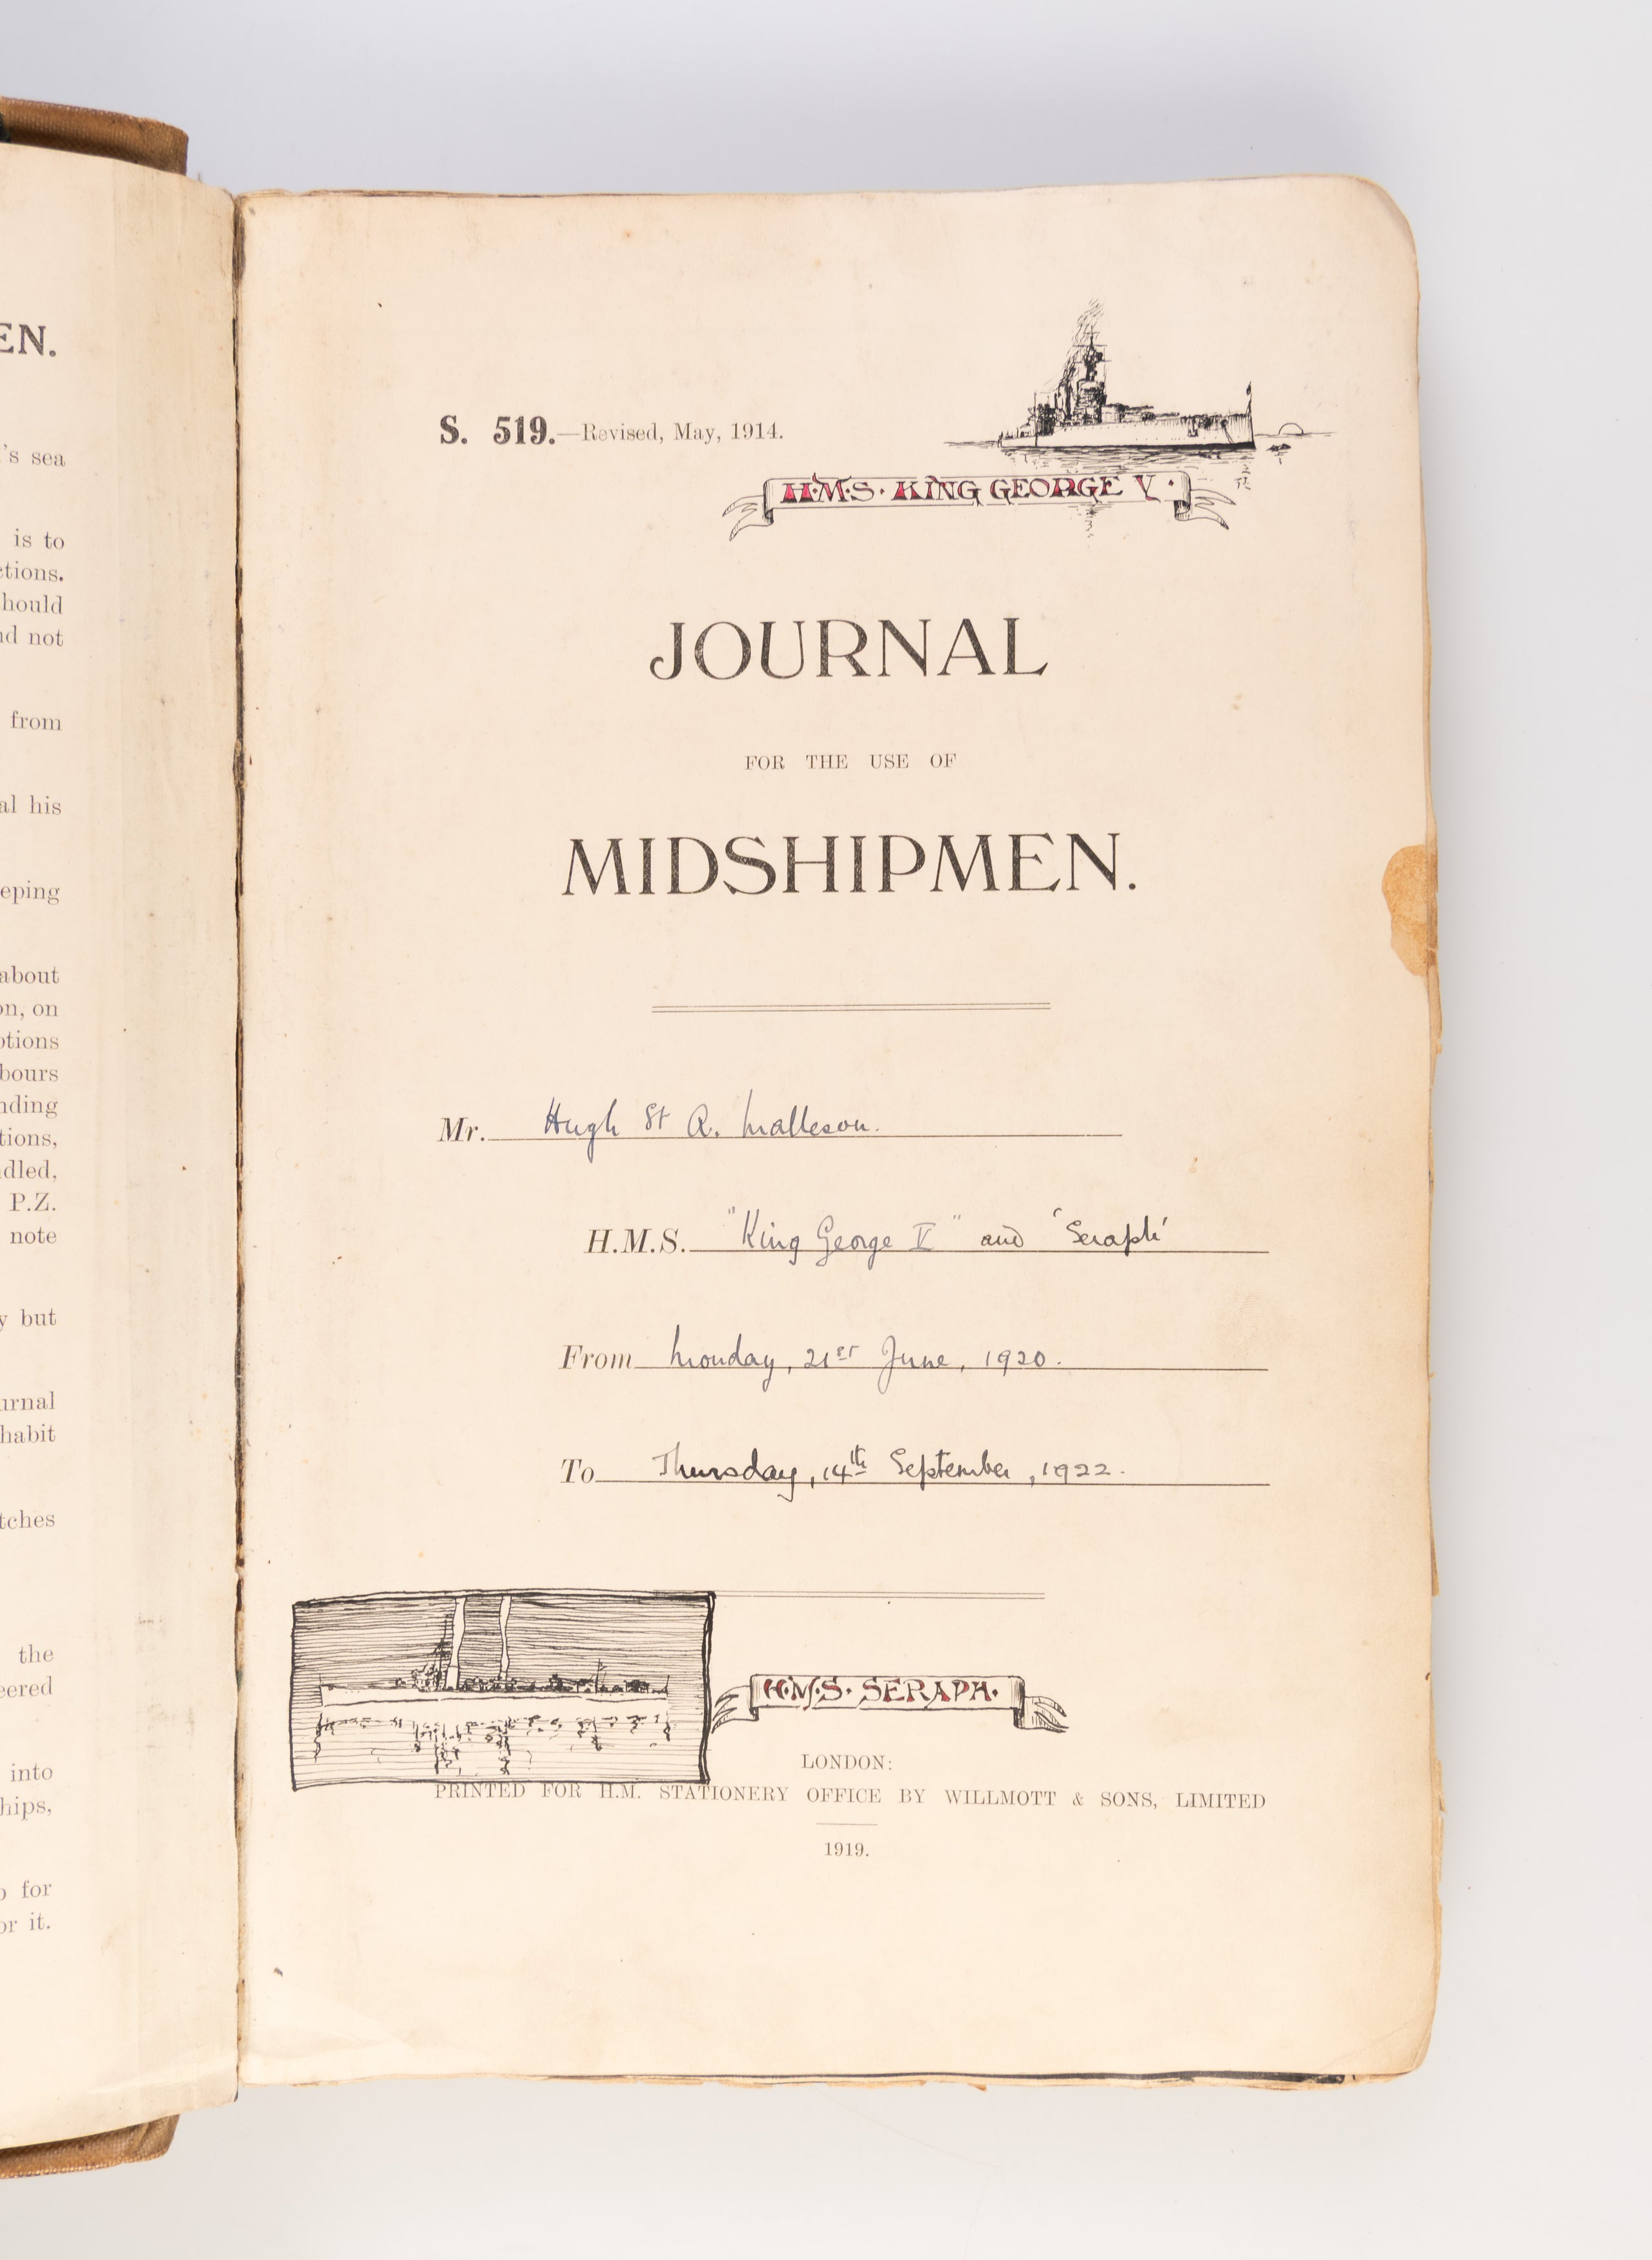 EN.
's sea
is to
ctions.
hould
nd not
from
al his
eeping
about
on, on
ptions
bours
nding
tions,
dled,
P.Z.
note
y but
urnal
habit
tches
the
eered
into
hips,
o for
or it.
S. 519.—Revised, May, 1914.
H·M·S· KING GEORGE V·
JOURNAL
FOR THE USE OF
MIDSHIPMEN.
Mr. Hugh St A. Malleson.
H.M.S. "King George V" and 'Seraph'
From Monday, 21st June, 1920.
To Thursday, 14th September, 1922.
H·M·S· SERAPH·
LONDON:
PRINTED FOR H.M. STATIONERY OFFICE BY WILLMOTT & SONS, LIMITED
1919.